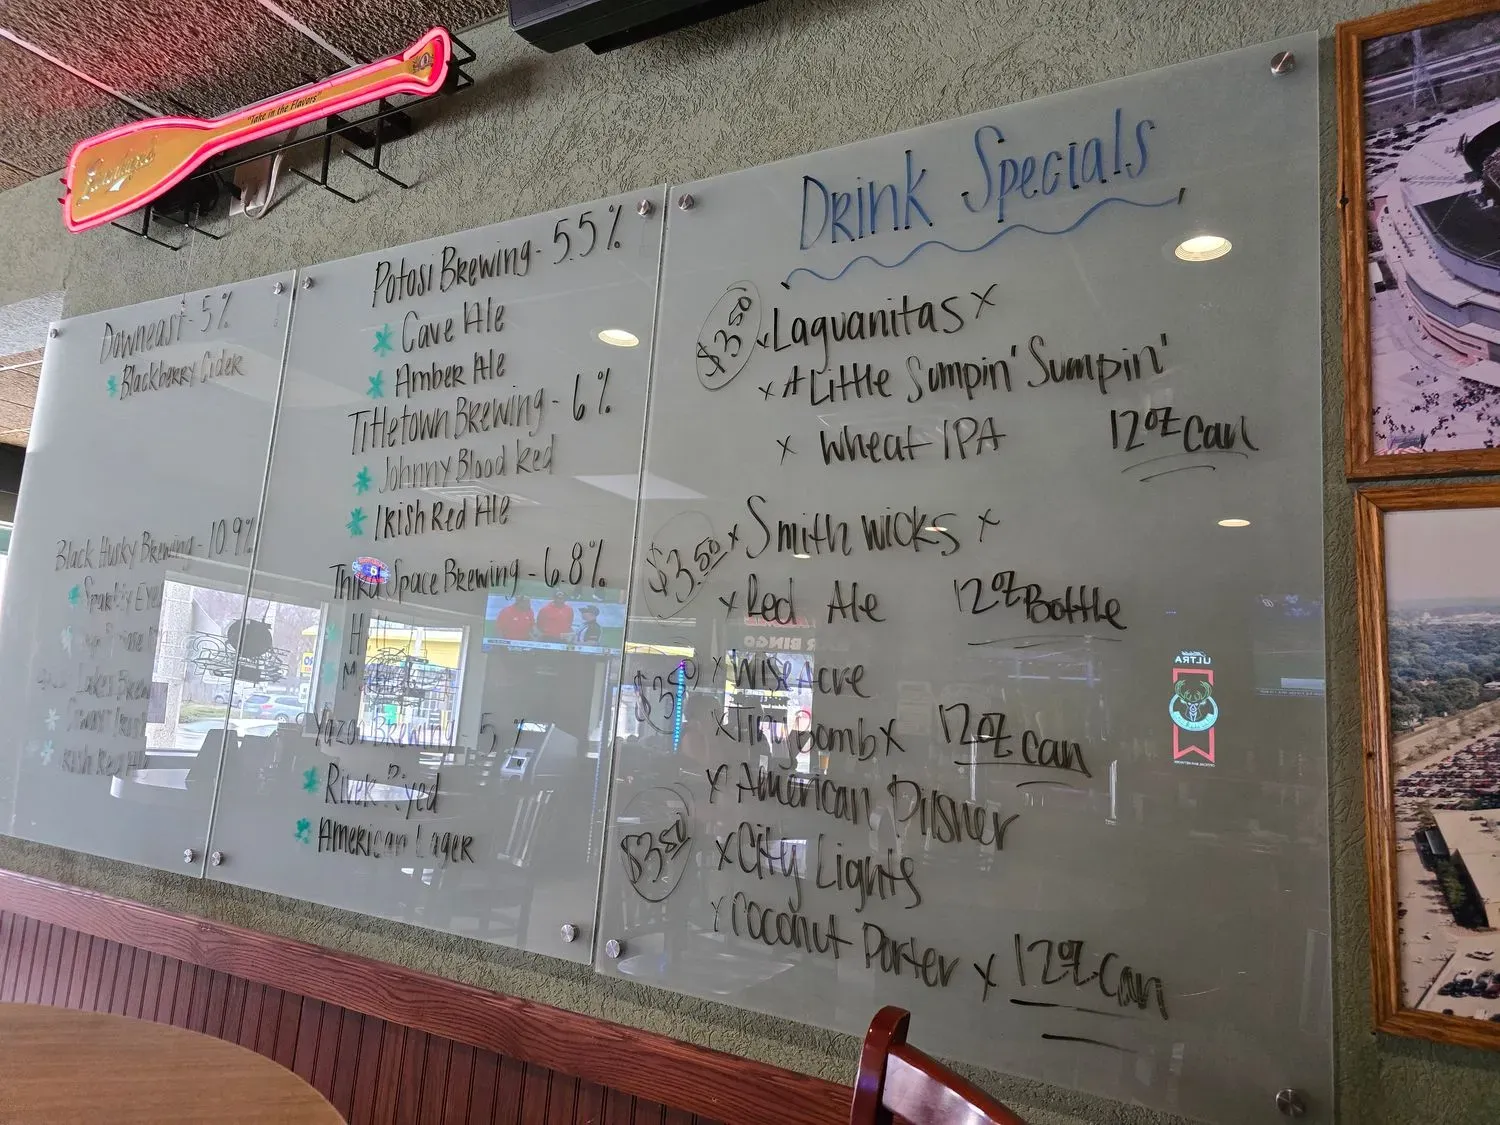 "Take in the Flavors"
Leinenkugel's
Downeast - 5%
Blackberry Cider
Black Husky Brewing - 10.9%
Sparkly Eye
Lakes Brew
Irish Red Ale
Potosi Brewing - 5.5%
Cave Ale
Amber Ale
Titletown Brewing - 6%
Johnny Blood Red
Irish Red Ale
Third Space Brewing - 6.8%
H
M
Yazoo Brewing 5%
River Ryed
American Lager
Drink Specials
$3.50 x Laguanitas x
x A Little Sumpin' Sumpin'
x Wheat IPA 12oz Can
$3.50 x Smithwicks x
x Red Ale 12oz Bottle
$3.50 x Wise Acre
x Tiny Bomb x 12oz Can
x American Pilsner
$3.50 x City Lights
x Coconut Porter x 12oz Can
BINGO
ULTRA